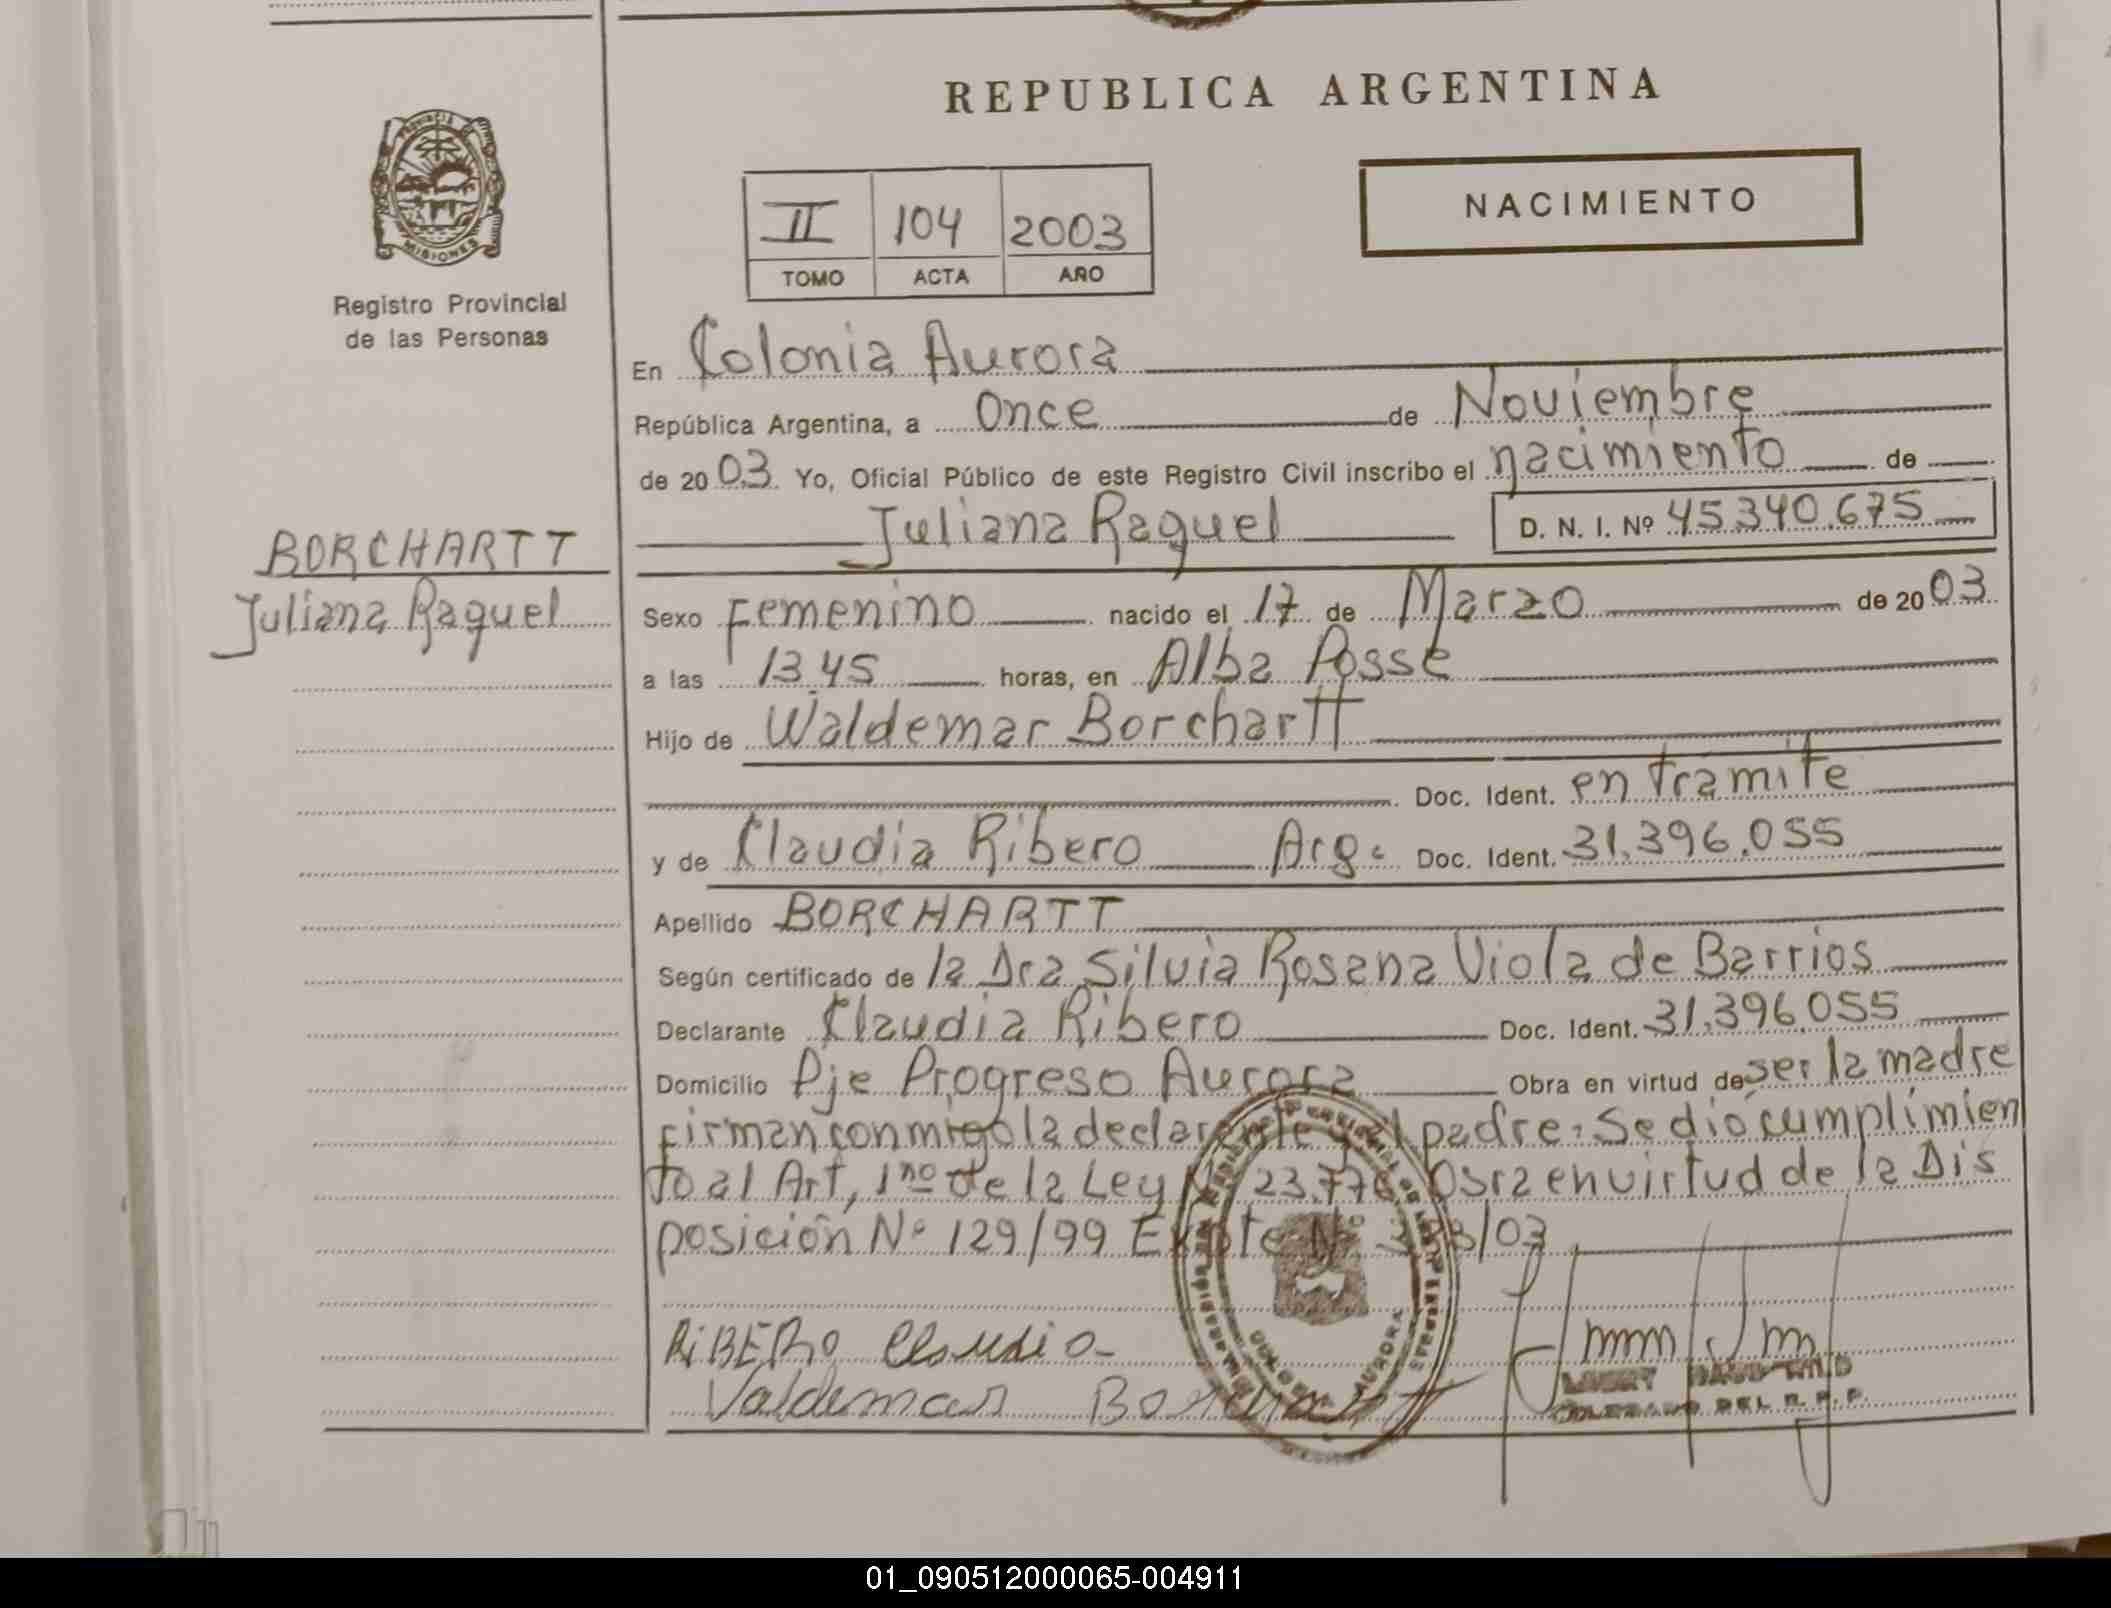 REPUBLICA ARGENTINA
PROVINCIA DE
MISIONES
Registro Provincial
de las Personas
II 104 2003
TOMO ACTA AÑO
NACIMIENTO
En Colonia Aurora
República Argentina, a Once de Noviembre
de 2003. Yo, Oficial Público de este Registro Civil inscribo el nacimiento de
Juliana Raquel D. N. I. Nº 45.340.675
BORCHARTT
Juliana Raquel
Sexo Femenino nacido el 17 de Marzo de 2003
a las 13.45 horas, en Alba Posse
Hijo de Waldemar Borchartt
Doc. Ident. en tramite
y de Claudia Ribero Arg. Doc. Ident. 31.396.055
Apellido BORCHARTT
Según certificado de la Dra Silvia Rosana Viola de Barrios
Declarante Claudia Ribero Doc. Ident. 31.396.055
Domicilio Pje Progreso Aurora Obra en virtud de ser la madre
firman conmigo la declarante y el padre. Se dió cumplimien
to al Art, 1ro de la Ley Nº 23.776 Osra en virtud de la Dis
posición Nº 129/99 Expte Nº /03
RiBERO Claudia
Valdemar Borchartt
COLONIA AURORA
DEL R.P.P.
01_090512000065-004911